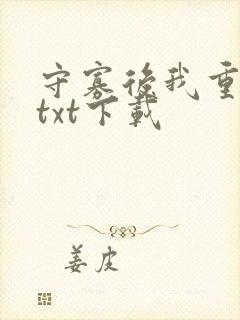 守寡後我重
txt下載
姜皮